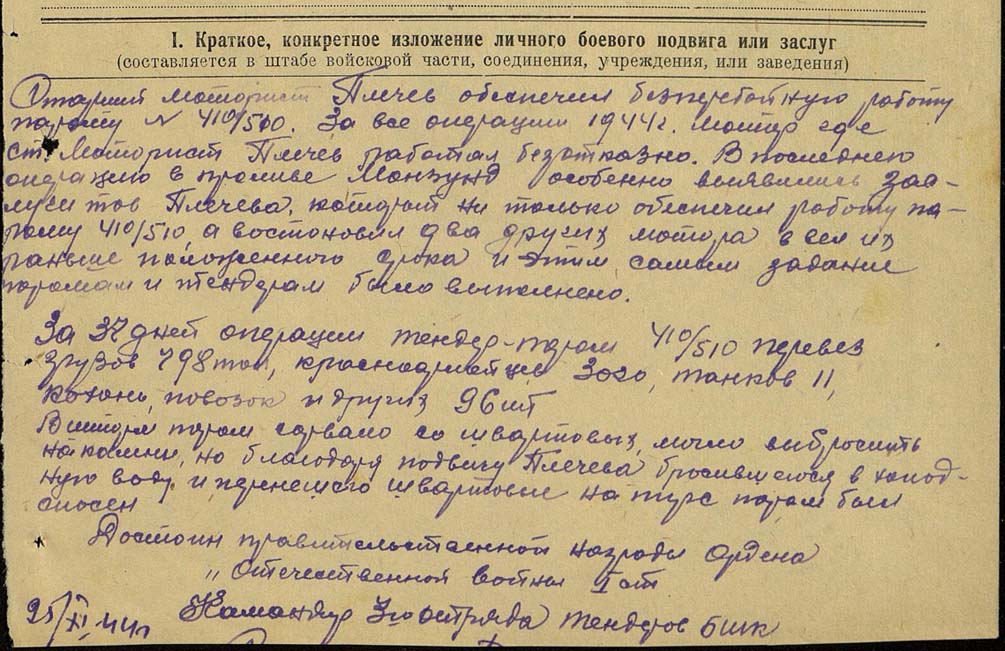 I. Краткое, конкретное изложение личного боевого подвига или заслуг
(составляется в штабе войсковой части, соединения, учреждения, или заведения)
Старший моторист Плечев обеспечил безперебойную работу
парому № 410/510. За все операции 1944г. мотор где
ст. Моторист Плечев работал безотказно. В последнего
операцию в проливе Моонзунд особенно выявились зас-
луги тов Плечева, который ни только обеспечил работу па-
рому 410/510, а востоновил два других мотора введя их
раньше положенного срока и этим самым задание
паромам и тендерам было выполнено.
За 37 дней операции тендер-паром 410/510 перевез
грузов 798 тон, красноармейцев 3020, танков 11,
повозок и других 96 шт
В шторм паром сорвало со швартовых, могло выбросить
на камни, но благодаря подвигу Плечева бросившегося в холод-
ную воду и перенешего швартовые на пирс паром был
спасен
Достоин правительственной награды Ордена
„ Отечественной войны I ст
25/XI 44г Командир 3го отряда тендеров